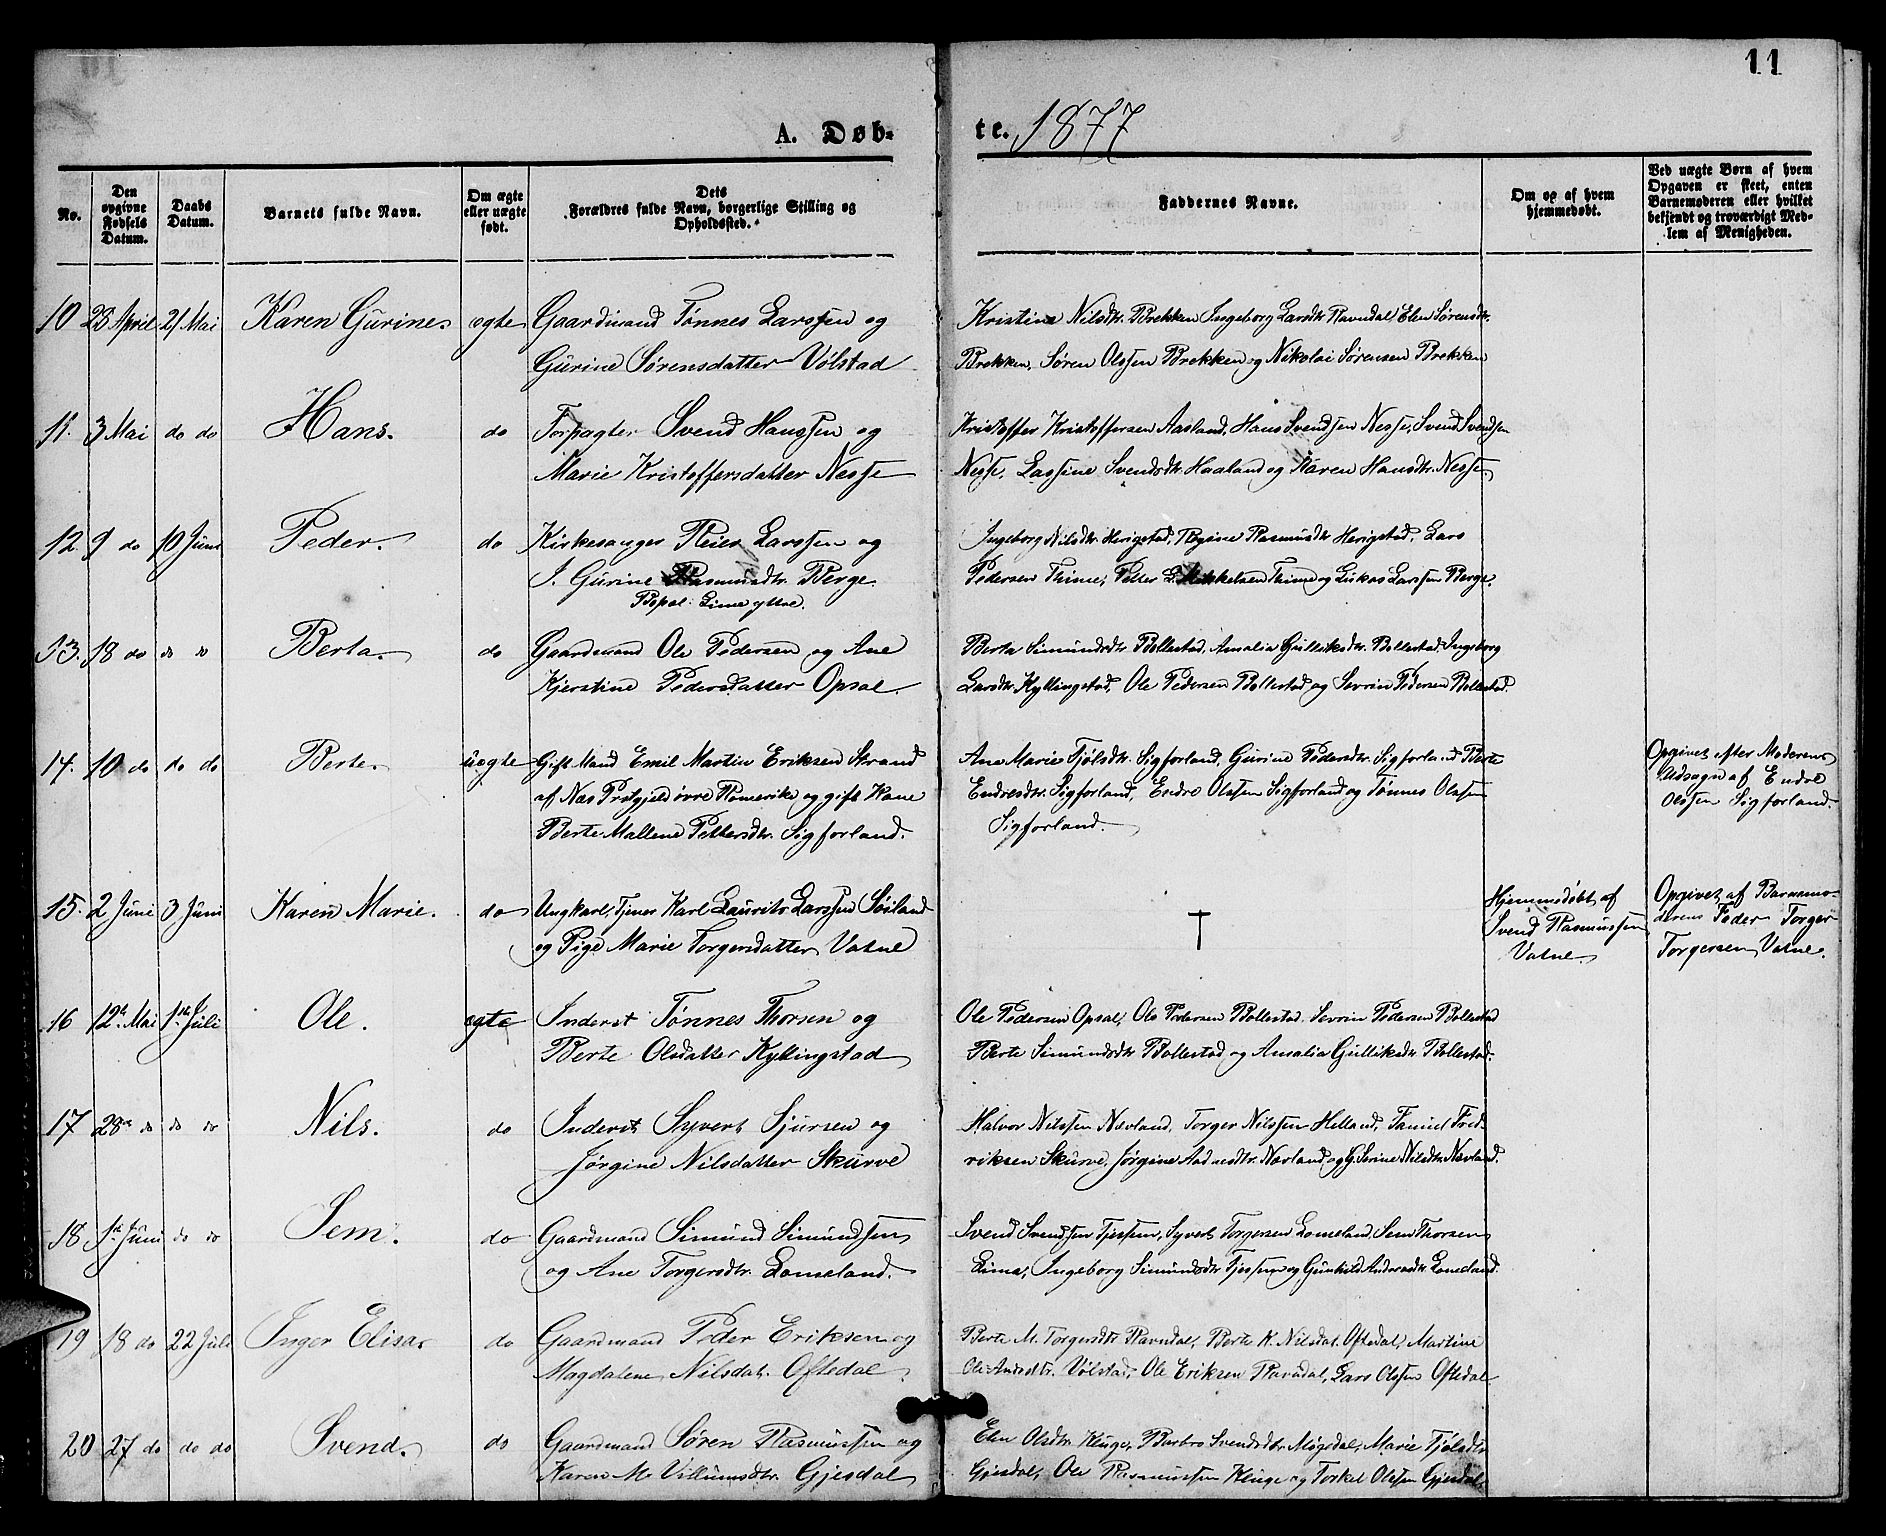 11
A. Døb-
te. 1877
No.
Den opgivne Fødsels Datum.
Daabs Datum.
Barnets fulde Navn.
Om ægte eller uægte født.
Dets Forældres fulde Navn, borgerlige Stilling og Opholdssted.
Faddernes Navne.
Om og af hvem hjemmedøbt.
Ved uægte Børn af hvem Opgaven er skeet, enten Barnemoderen eller hvilket bekjendt og troværdigt Medlem af Menigheden.
10 28 April 21 Mai Karen Gurine ægte Gaardmand Tønnes Larssen og
Gurine Sørensdatter Vølstad
Kristine Nilsdtr. Brekken Ingeborg Larsdtr. Ravndal, Elen Sørensdtr.
Brekken, Søren Olssen Brekken og Nikolai Sørensen Brekken
11. 3 Mai do do Hans. do Forpagter Svend Hanssen og
Marie Kristoffersdatter Nesse
Kristoffer Kristoffersen Aasland, Hans Svendsen Nesse, Svend Svendsen
Nesse, Lassine Svendsdtr. Haaland og Karen Hansdtr. Nesse
12 9 do 10 Juni Peder. do Kirkesanger Reier Larssen og
J. Gurine Rasmusdtr. Berge.
Bopæl: Lime ytre.
Ingeborg Nilsdtr. Herigstad, Rasmusdtr Herigstad, Lars
Pedersen Thime, Mikkelsen Thime og Larssen Berge.
13. 18 do do do Berta. do Gaardmand Ole Pedersen og Ane
Kjerstine Pedersdatter Opsal
Berta Simundsdtr. Bollestad, Amalia Gulliksdtr. Bollestad, Ingeborg
Larsdtr. Kyllingstad, Ole Pedersen Bollestad og Sevrin Pedersen Bollestad
14. 10 do do do Berte. uægte Gift Mand Emil Martin Eriksen Strand
af Næs Prstgjeld øvre Romerike og gift Kone
Berte Mallene Pettersdtr. Sigforland.
Ane Marie Tjølsdtr. Sigforland, Gurine Pedersdtr. Sigforland Berte
Endresdtr. Sigforland, Endre Olssen Sigforland og Tønnes Olssen
Sigforland.
Opgivet efter Moderens
Udsagn af Endre
Olssen Sigforland.
15. 2 Juni 3 Juni Karen Marie. do Ungkarl, Tjener Karl Laurits Larssen Søiland
og Pige Marie Torgersdatter Vatne
†
Hjemmedøbt af
Svend Rasmussen
Vatne
Opgivet af Barnemo-
derens Fader Torger
Torgersen Vatne.
16 12te Mai 1ste Juli Ole. ægte Inderst Tønnes Thorsen og
Berte Olsdatter Kyllingstad
Ole Pedersen Opsal, Ole Pedersen Bollestad, Sevrin Pedersen Bollestad
Berte Simundsdtr. Bollestad og Amalia Gulliksdtr. Bollestad.
17 28de do do do Nils. do Inderst Syvert Sjursen og
Jørgine Nilsdatter Skurve
Halvor Nilssen Nævland, Torger Nilssen Helland, Fred-
riksen Skurve, Jørgine Aadnesdtr. Nævland og G. Serine Nilsdtr. Nævland.
18 1ste Juni do do Sem. do Gaardmand Simund Simundsen
og Ane Torgersdtr. Lomeland.
Svend Svendsen Tjessem, Syvert Torgersen Lomeland, Sem Thorsen
Lima, Ingeborg Simundsdtr. Tjessem og Gunhild Andersdtr. Lomeland.
19 18 do 22 Juli Inger Elisa do Gaardmand Peder Eriksen og
Magdalene Nilsdat. Oftedal
Berte M. Torgersdtr. Ravndal, Berte K. Nilsdat. Oftedal, Martine
Vølstad, Ole Eriksen Ravndal, Lars Olssen Oftedal
20 27 do do do Svend. do Gaardmand Søren Rasmussen og
Karen M. Villumsdtr. Gjesdal
Elen Olsdtr. Kluge, Barbro Svendsdtr. Møgedal, Marie Tjølsdtr.
Gjesdal, Ole Rasmussen Kluge og Torkel Olssen Gjesdal